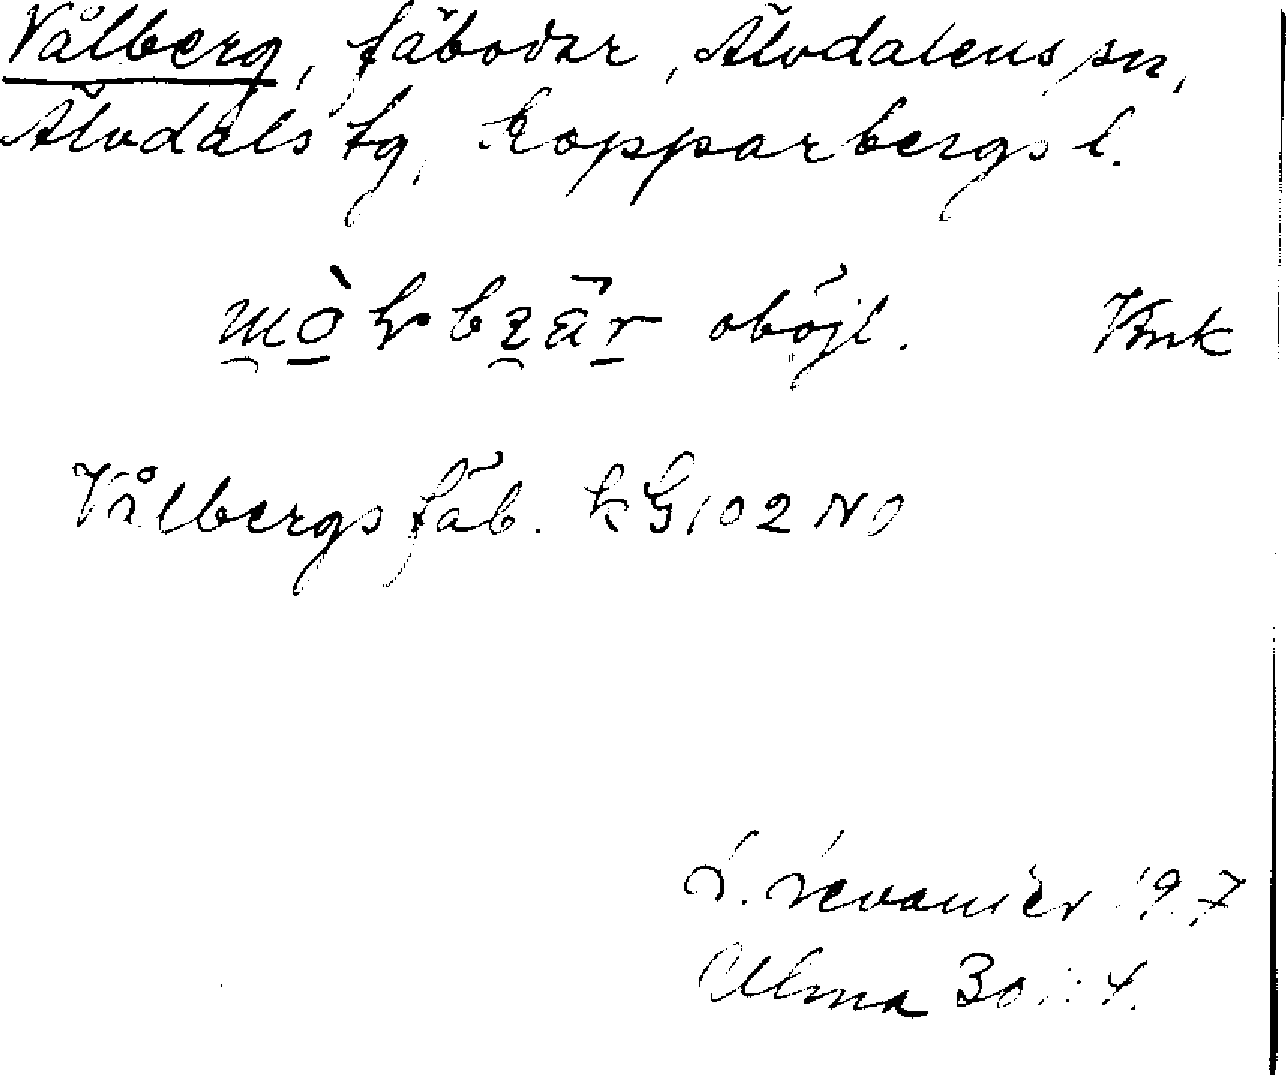 Vålberg, fäbodar, Älvdalens sn,
Älvdals tg, Kopparbergs l.
oböjl.
Vålbergs fäb. kG 102 NO
L. Levander 19 7
Ulma 30 : 4.